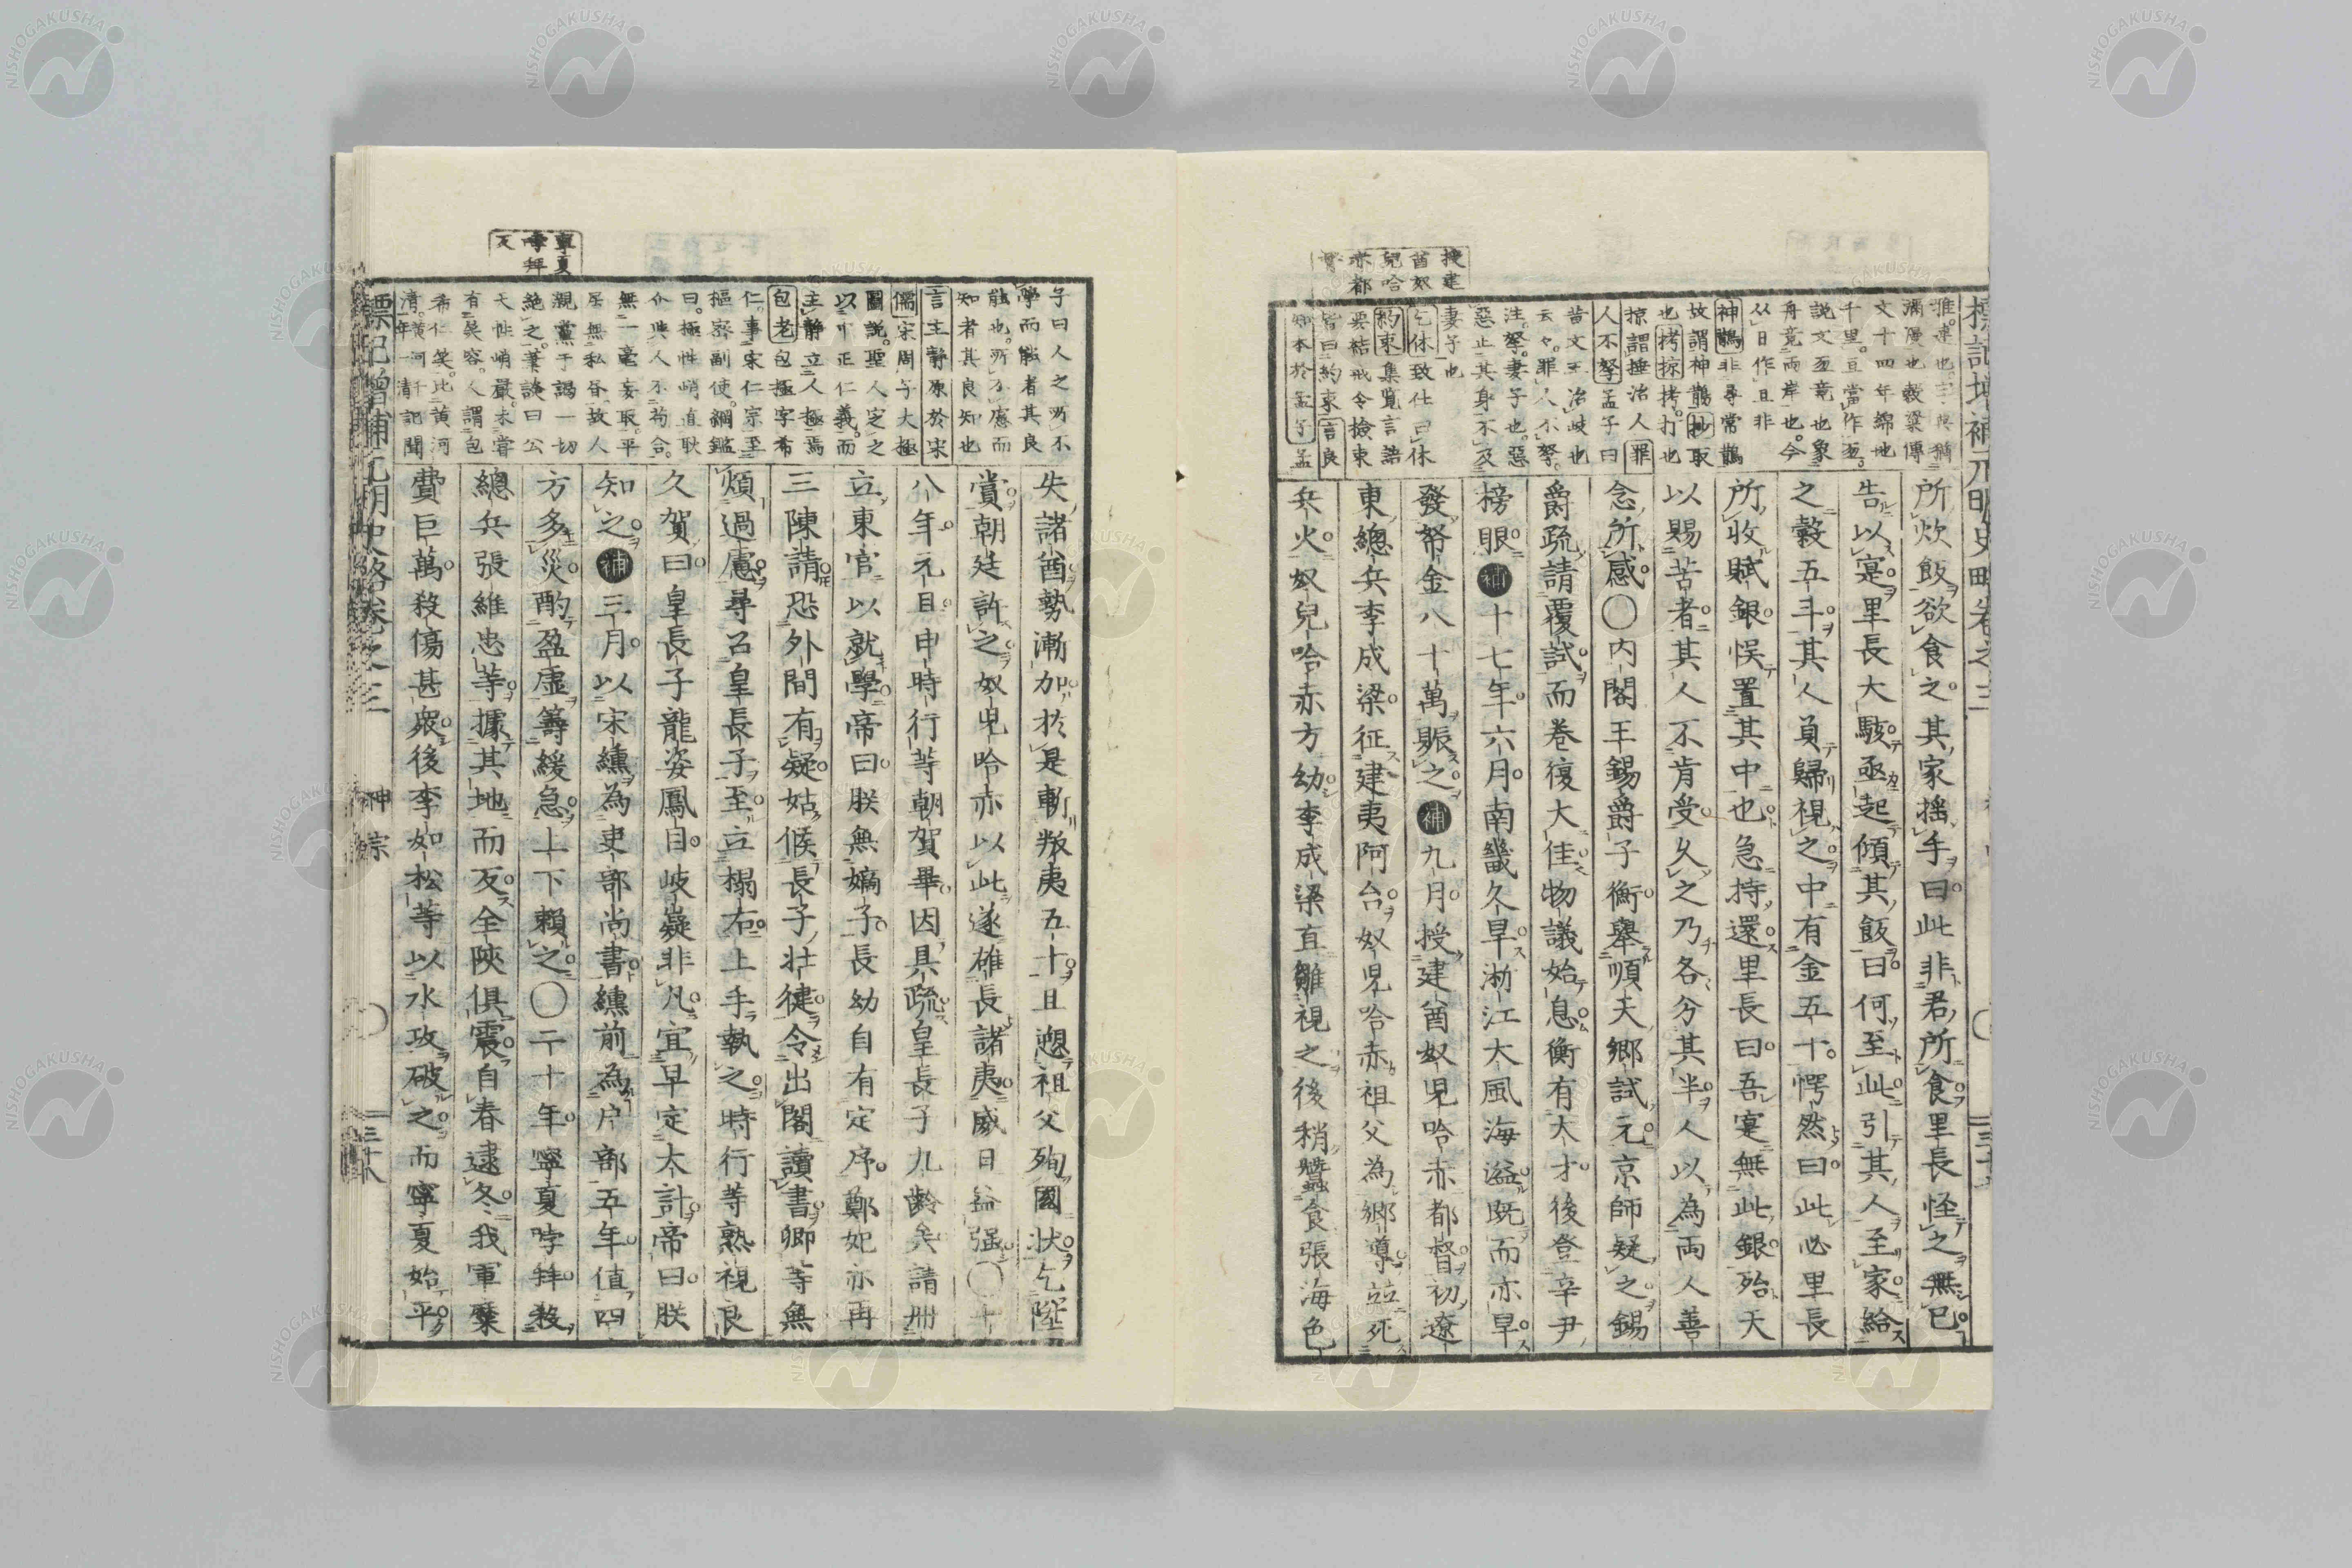 標記増補元明史略卷之三
所炊飯欲食之其家搖手曰此非君所食里長怪之無已
告以寔里長大駭亟起傾其飯曰何至此引其人至家給
之穀五斗其人負歸視之中有金五十愕然曰此必里長
所收賦銀悞置其中也急持還里長曰吾寔無此銀殆天
以賜苦者其人不肯受久之乃各分其半人以為兩人善
念所感〇内閣王錫爵子衡舉順天鄉試元京師疑之錫
爵疏請覆試而卷復大佳物議始息衡有大才後登辛丑
榜眼補十七年六月南畿久旱浙江大風海溢既而亦旱
發帑金八十萬賑之補九月授建酋奴児哈赤都督初遼
東總兵李成梁征建夷阿台奴児哈赤祖父為鄉導並死
兵火奴児哈赤方幼李成梁直雛視之後稍蠶食張海色
授建
酋奴
兒哈
赤都
督
文十四年綿地
千里亘當作亙
說文亙竟也象
舟竟兩岸也今
从日作亘非
神鵲非尋常鵲
故謂神鵲抄取
也拷掠拷打也
掠謂捶治人罪
人不孥孟子曰
昔文王治岐也
云々罪人不孥
注孥妻子也惡
惡止其身不及
妻子也
乞休致仕曰休
約束集覧言語
要結戒令檢束
皆曰約束言良
知本於孟子孟
失諸酋勢漸加於是斬叛夷五十且遡祖父殉國狀乞陞
賞朝廷許之奴児哈赤以此遂雄長諸夷威日益强〇十
八年元日申時行等朝賀畢因具疏皇長子九齡矣請冊
立東宮以就學帝曰朕無嫡子長幼自有定序鄭妃亦再
三陳請恐外間有疑姑候長子壯健令出閣讀書卿等無
煩過慮尋召皇長子至立榻右上手執之時行等熟視良
久賀曰皇長子龍姿鳳目岐嶷非凡宜早定大計帝曰朕
知之補三月以宋纁為吏部尚書纁前為戶部五年值四
方多災酌盈虛籌緩急上下賴之〇二十年寧夏哱拜殺
總兵張維忠等據其地而反全陝俱震自春逮冬我軍糜
費巨萬殺傷甚衆後李如松等以水攻破之而寧夏始平
寧夏
哱拜
反
子曰人之所不
學而能者其良
能也所不慮而
知者其良知也
言主靜原於宋
儒宋周子太極
圖說聖人定之
以中正仁義而
主靜立人極焉
包老包極字希
仁事宋仁宗至
樞密副使綱鑑
曰極性峭直耿
介與人不苟合
無一毫妄取平
居無私書故人
親黨干謁一切
絶之筆談曰公
天性峭嚴未嘗
有笑容人謂包
希仁笑比黄河
清黄河千年一清記聞
標記増補元明史略卷之三
神宗
三十八